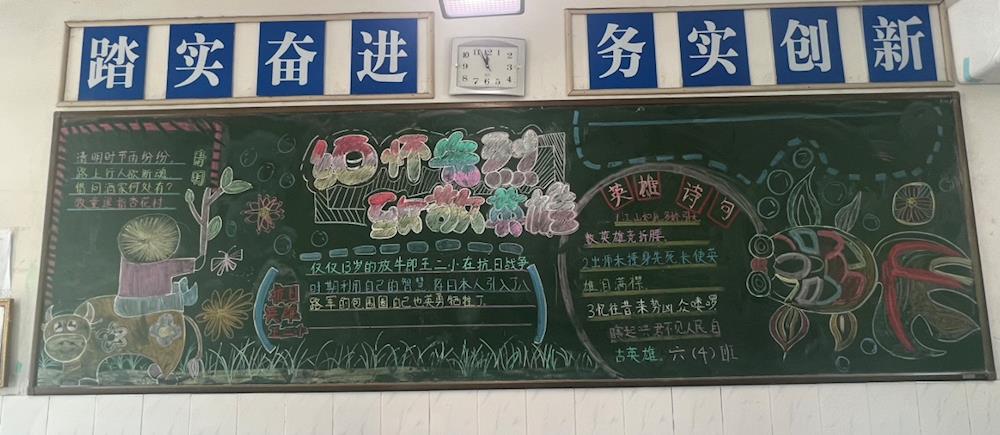 踏实奋进
务实创新
清明
清明时节雨纷纷
路上行人欲断魂
借问酒家何处有?
牧童遥指杏花村
缅怀先烈
致敬英雄
仅仅13岁的放牛郎王二小在抗日战争
时期利用自己的智慧 将日本人引入了八
路军的包围圈自己也英勇牺牲了
英雄诗句
数英雄竞折腰.
2出师未捷身先死长使英
雄泪满襟.
3忆往昔
君不见人民自
古英雄. 六(4)班